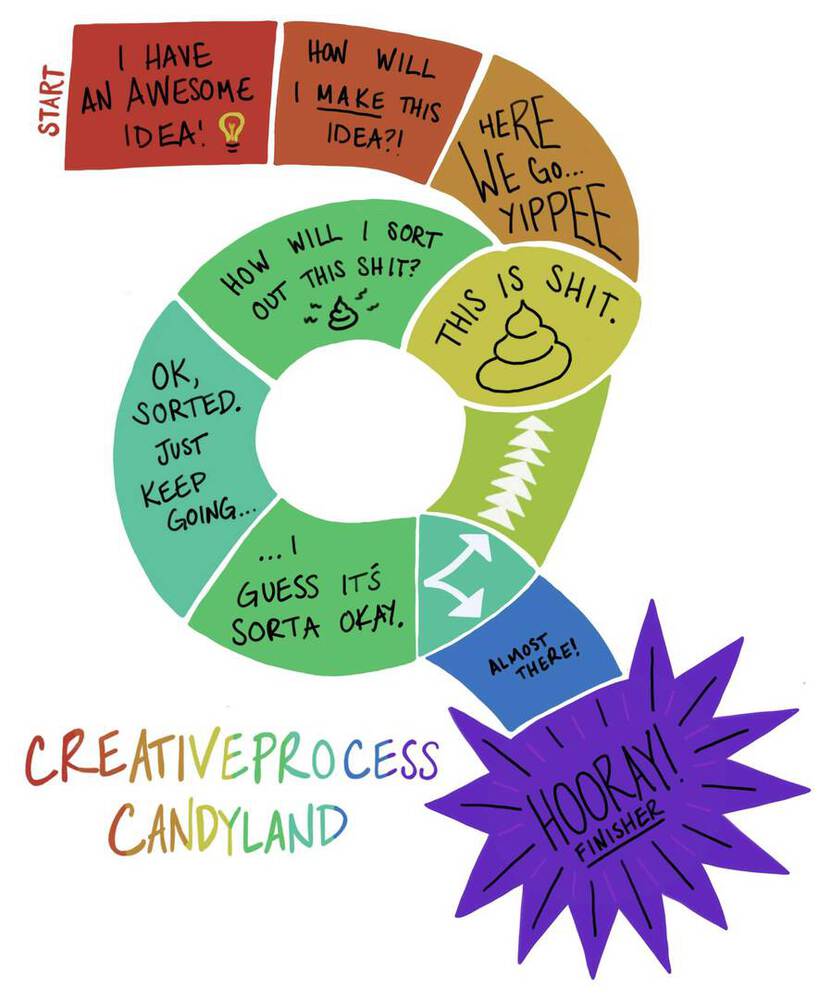 START
I HAVE
AN AWESOME
IDEA!
HOW WILL
I MAKE THIS
IDEA?!
HERE
WE GO...
YIPPEE
THIS IS SHIT.
HOW WILL I SORT
OUT THIS SHIT?
OK,
SORTED.
JUST
KEEP
GOING...
...I
GUESS IT'S
SORTA OKAY.
ALMOST
THERE!
HOORAY!
FINISHER
CREATIVEPROCESS
CANDYLAND